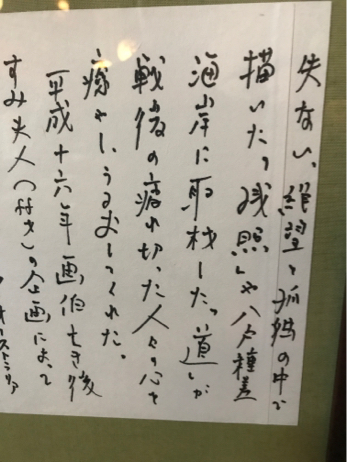 失ない、絶望と孤独の中で
描いた「残照」や八戸種差
海岸に取材した「道」が
戦後の疲れ切った人々の心を
癒やし、うるおしてくれた。
平成十六年画伯亡き後
すみ夫人の企画によって
オーストラリア